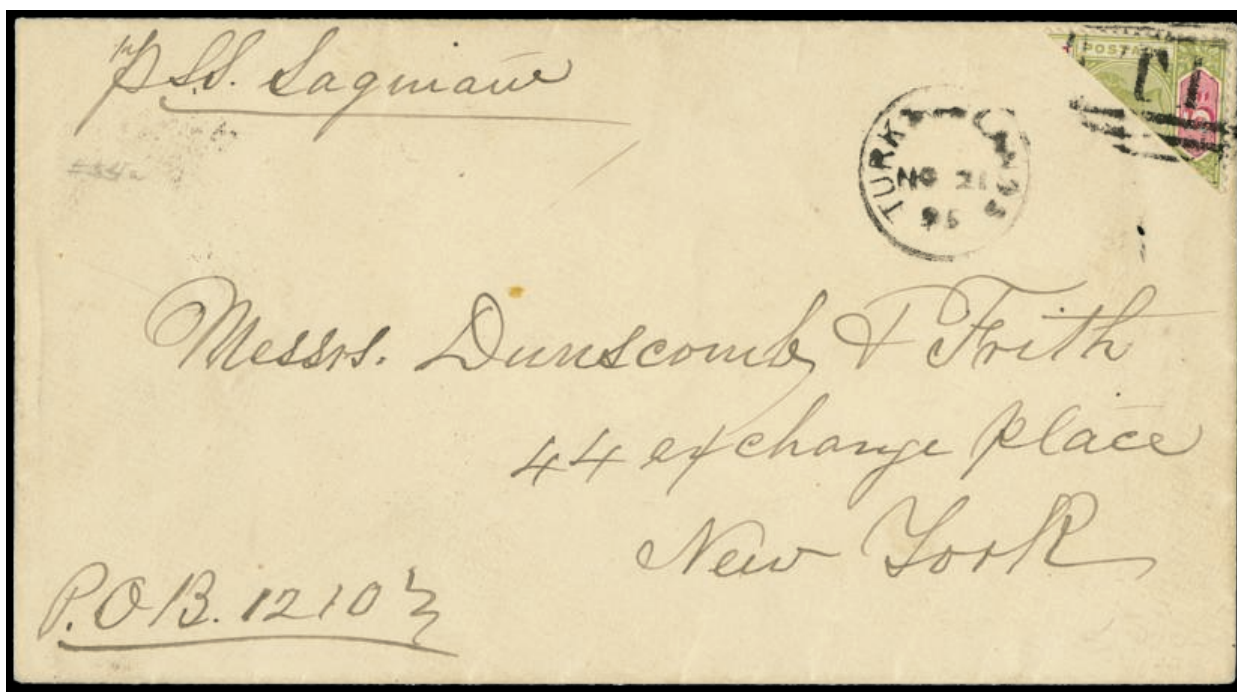 p S.S. Saginaw
POSTAG
5
TURK
NO 21
95
Messrs. Dunscomb & Frith
44 exchange place
New York
P.O.B. 1210